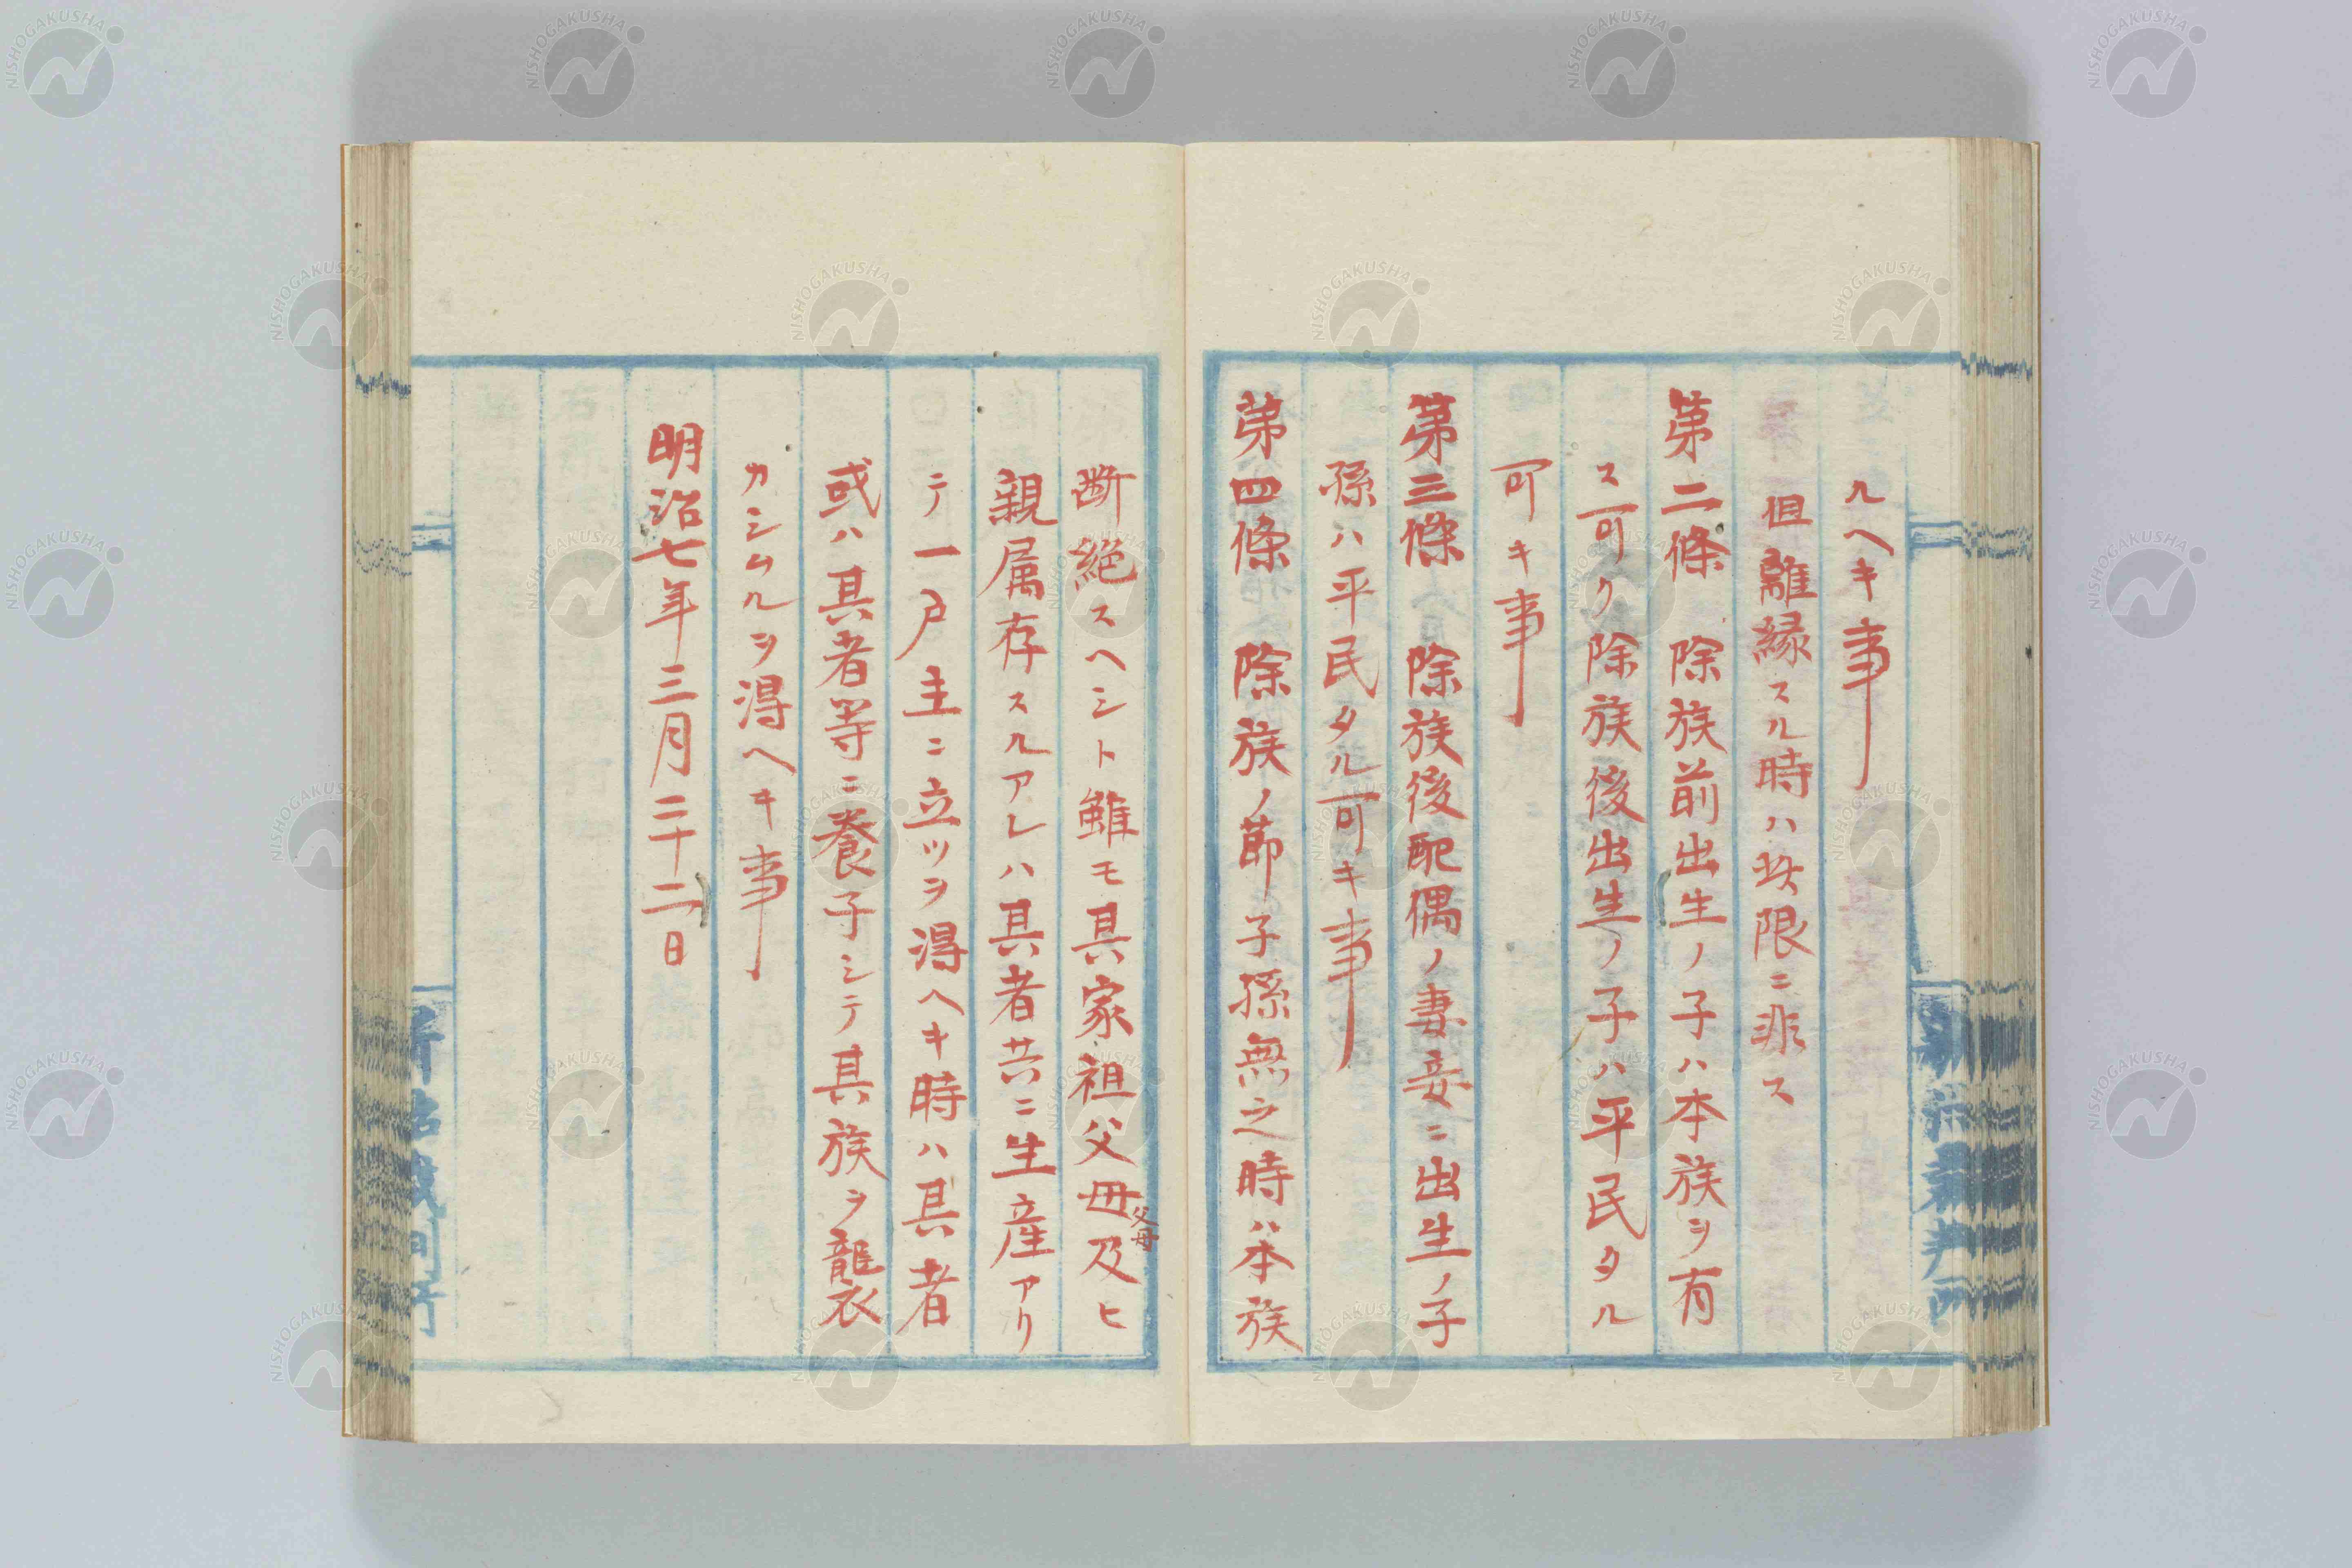 ルヘキ事
但離縁スル時ハ此限ニ非ス
第二條 除族前出生ノ子ハ本族ヲ有
ス可ク除族後出生ノ子ハ平民タル
可キ事
第三條 除族後配偶ノ妻妾ニ出生ノ子
孫ハ平民タル可キ事
第四條 除族ノ節子孫無之時ハ本族
断絶スヘシト雖モ其家祖父母及ヒ
父母
親属存スルアレハ其者共ニ生産アリ
テ一戸主ニ立ツヲ得ヘキ時ハ其者
或ハ其者等ニ養子シテ其族ヲ襲
カシムルヲ得ヘキ事
明治七年三月二十二日
NISHOGAKUSHA